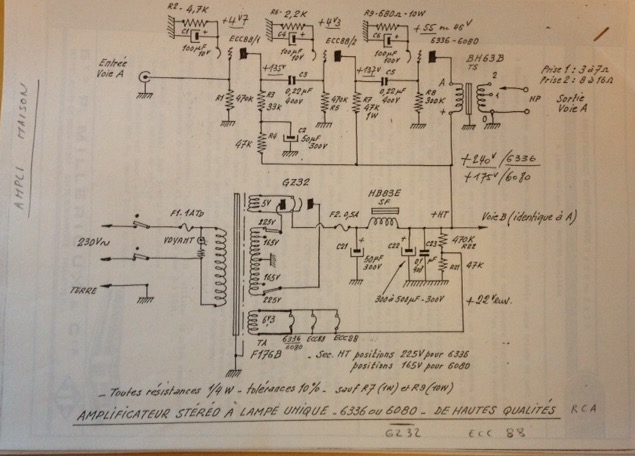 R2. 4,7K
+4V7
R6. 2,2K
+4V3
R9. 680Ω - 10W
+55 ou 45V
C1
100µF
10V
ECC88/1
C4
100µF
10V
ECC88/2
C6
100µF
10V
6336-6080
BH63B
TS
Prise 1 : 3 à 7Ω
Prise 2 : 8 à 16Ω
Entrée
Voie A
+135V
C3
+137V
C5
A
2
1
0
HP
Sortie
Voie A
R1
470K
R3
33K
0,22µF
400V
470K
R5
R7
47K
1W
0,22µF
400V
R8
300K
+
R4
47K
C2
50µF
300V
+240V/6336
+175V/6080
AMPLI MAISON
GZ32
5V
HB83E
SF
F1. 1ATD
225V
F2. 0,5A
+HT
Voie B (identique à A)
230V~
VOYANT
165V
165V
225V
C21
50µF
300V
C22
C23
0,1
µF
470K
R22
R21
47K
300 à 500µF - 300V
+22V env.
TERRE
6V3
TA
F176B
6336
6080
ECC88
ECC88
- Sec. HT positions 225V pour 6336
positions 165V pour 6080
- Toutes résistances 1/4 W - tolérances 10% - sauf R7 (1W) et R9 (10W)
AMPLIFICATEUR STÉRÉO À LAMPE UNIQUE - 6336 ou 6080 - DE HAUTES QUALITÉS
RCA
GZ32
ECC 88